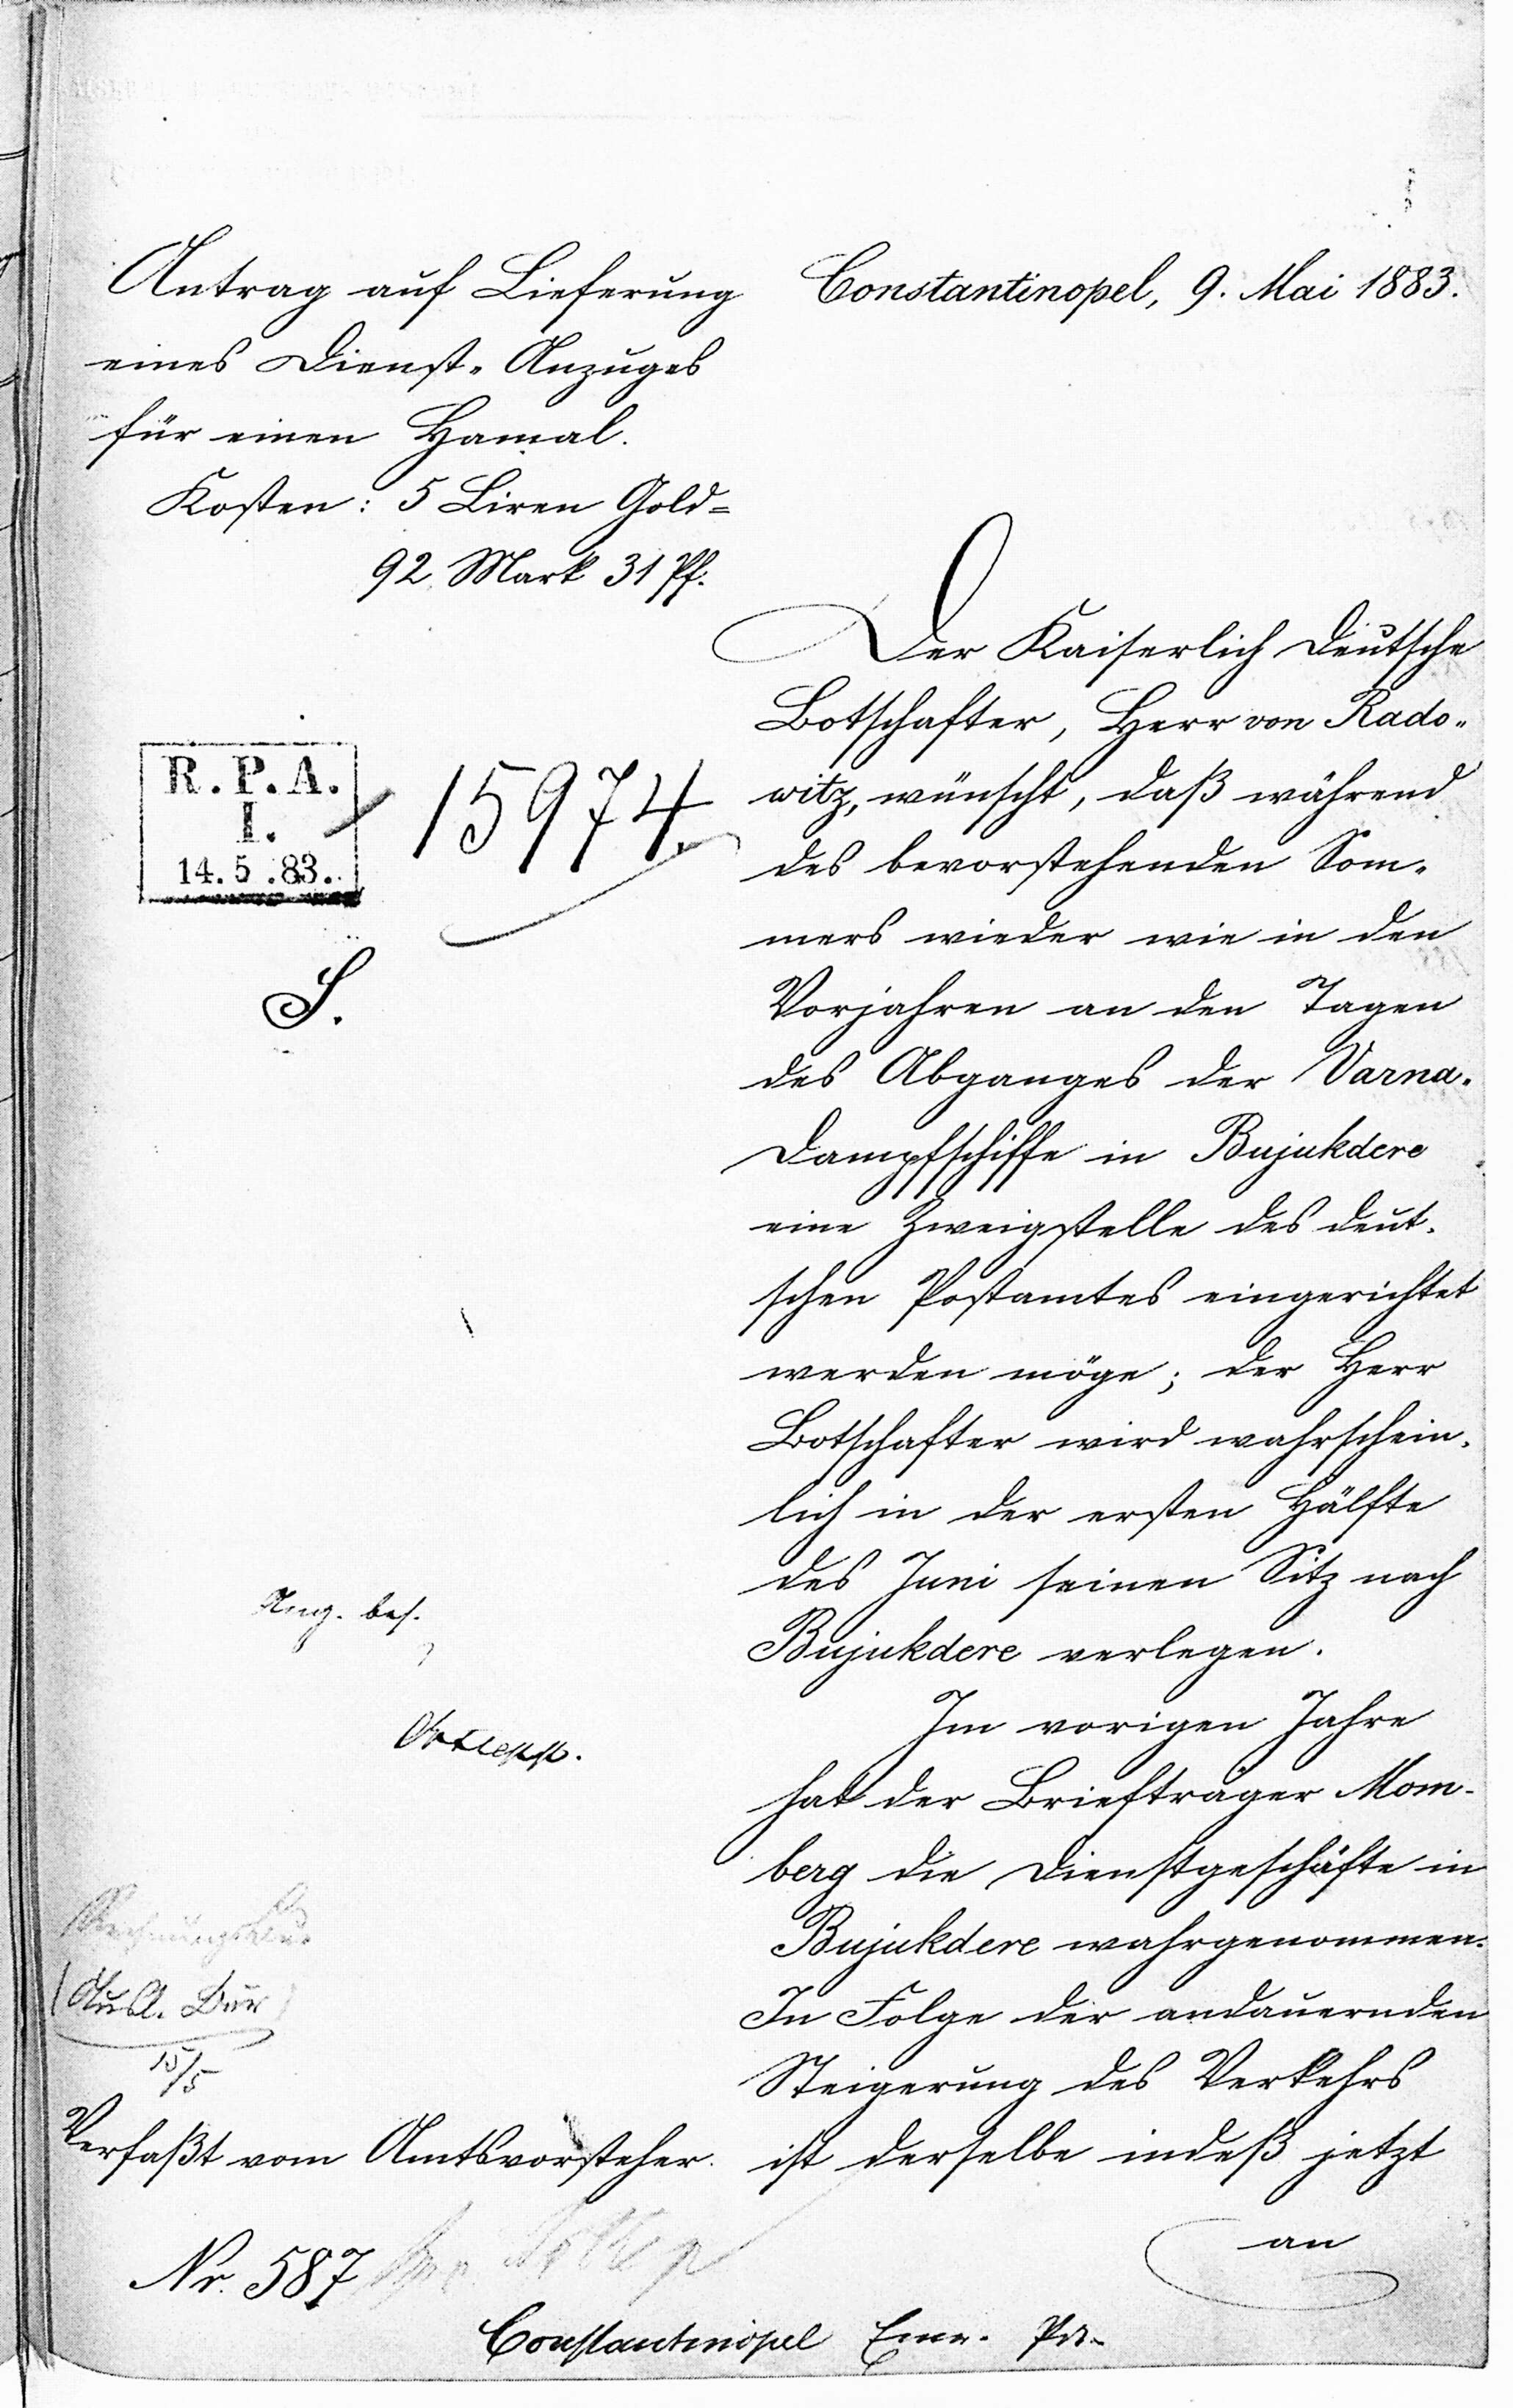 Antrag auf Lieferung
eines Dienst-Anzuges
für einen Hamal.
Kosten: 5 Liren Gold=
92 Mark 31 Pf.
R.P.A.
I.
14.5.83.
15974
S.
bes.
(Ausl. Bür)
15/5
Verfaßt vom Amtsvorsteher.
Nr. 587
Constantinopel, 9. Mai 1883.
Der Kaiserlich Deutsche
Botschafter, Herr von Rado-
witz, wünscht, daß während
des bevorstehenden Som-
mers wieder wie in den
Vorjahren an den Tagen
des Abganges der Varna-
Dampfschiffe in Bujukdere
eine Zweigstelle des deut-
schen Postamtes eingerichtet
werden möge; der Herr
Botschafter wird wahrschein-
lich in der ersten Hälfte
des Juni seinen Sitz nach
Bujukdere verlegen.
Im vorigen Jahre
hat der Briefträger Mom-
berg die Dienstgeschäfte in
Bujukdere wahrgenommen.
In Folge der andauernden
Steigerung des Verkehrs
ist derselbe indeß jetzt
an
Constantinopel